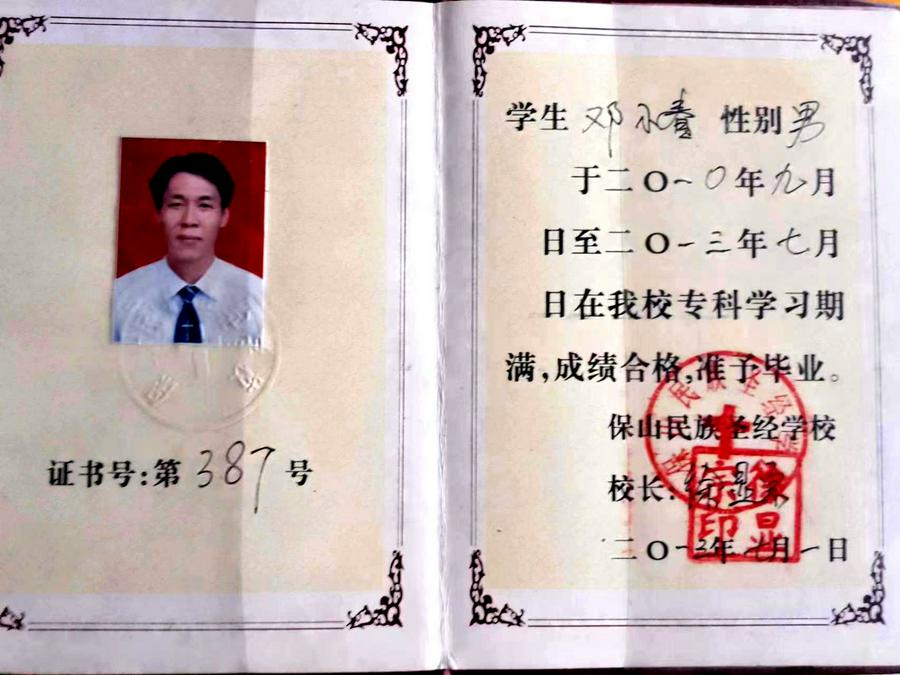 证书号:第387号
学生 邓永春 性别男
于二〇一〇年九月
日至二〇一三年七月
日在我校专科学习期
满,成绩合格,准予毕业。
保山民族圣经学校
校长:徐显荣
二〇一三年七月一日